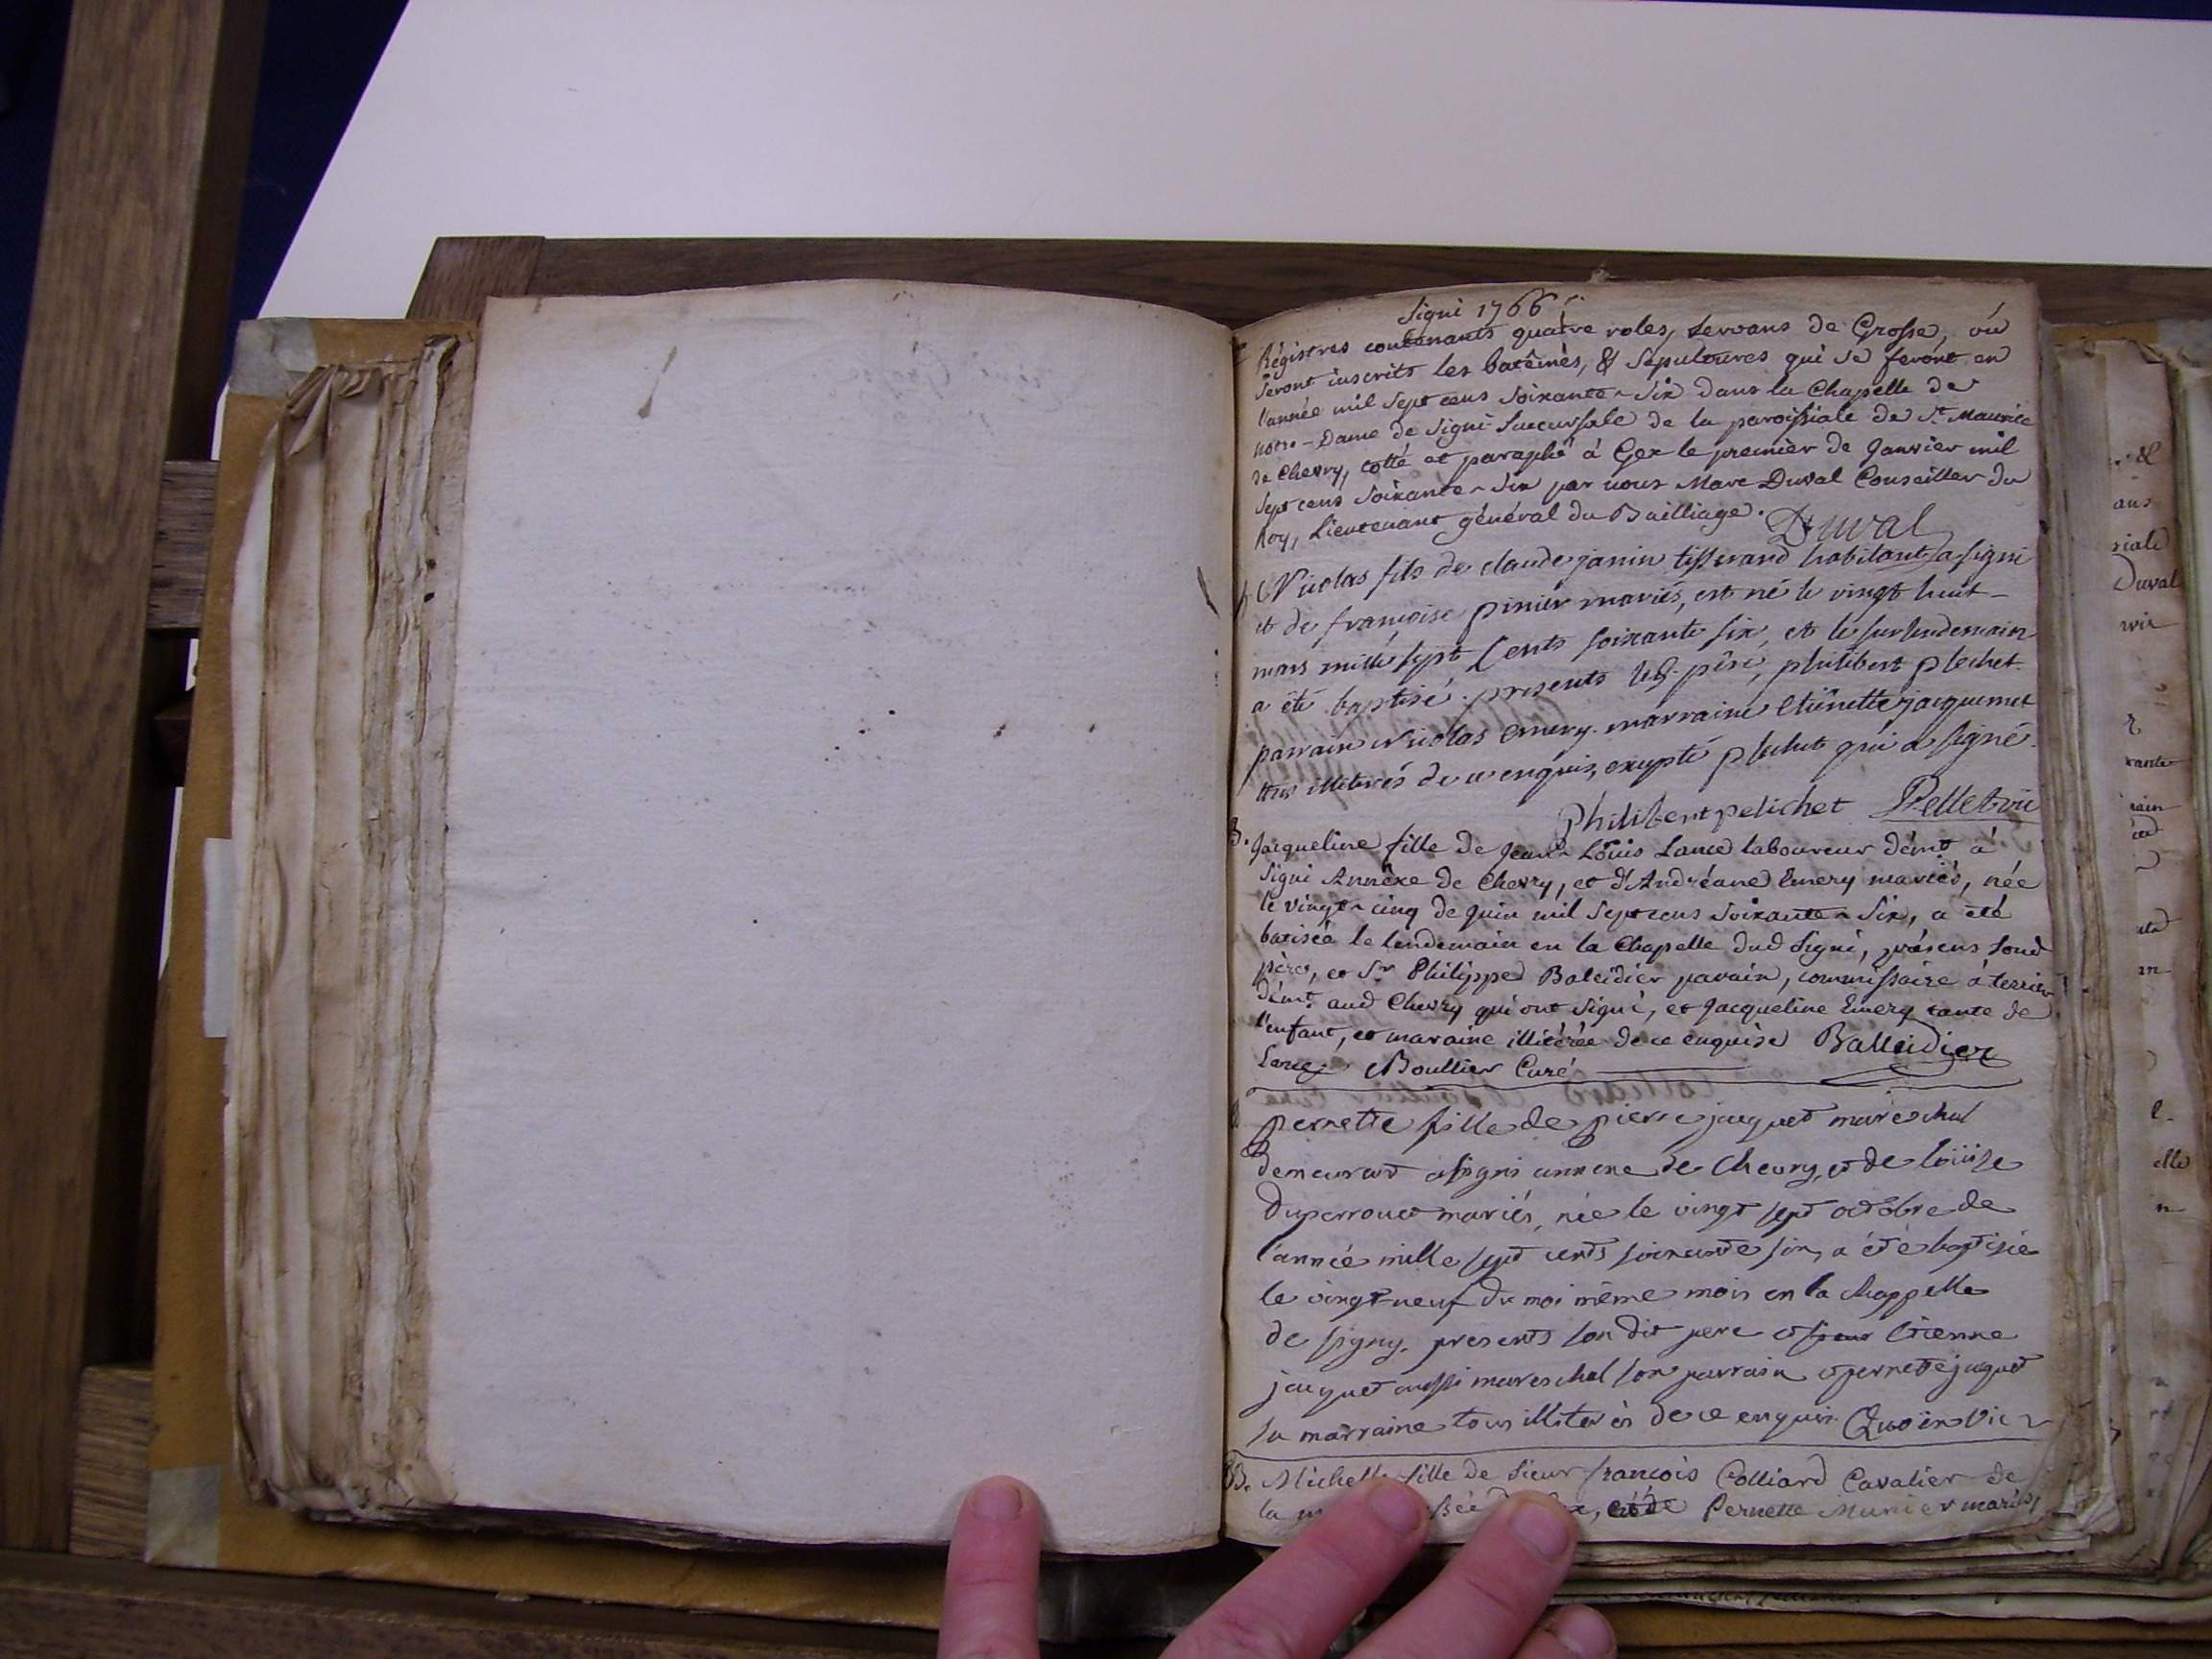 Signi 1766
Régistres contenants quatre roles, servans de Grosse, où
seront inscrits les batêmes, & Sépultures qui se feront en
l'année mil Sept cens Soixante-Six dans la Chapelle de
notre-Dame de Signi Succursale de la paroissiale de St. Maurice
de Chevry, cotté et paraphé à Gex le premier de Janvier mil
Sept cens Soixante-Six par nous Marc Duval Conseiller du
Roy, Lieutenant général du Bailliage.
Duval
Nicolas fils de claude janin tisserand habitant a signi
et de françoise pinier mariés, est né le vingt huit
mars mille sept Cents soixante six, et le surlendemain
a été baptisé. presents led. père, philibert plichet
parrain Nicolas Emery. marraine Etiènette jacquemet
tous illiterés de ce enquis, excepté plichet qui a signé.
Philibert pelichet Pelletvic
B. Jacqueline fille de Jean-Loüis Lance laboureur démt. à
Signi Annèxe de Chevry, et d'Andréane Emery mariés, née
le vingt-cinq de Juin mil Sept cens Soixante-Six, a été
batisée le lendemain en la Chapelle dud Signi, présens Sond
père, et Sr. Philippe Baleidier parain, commissaire à terrier
démt. aud Chevry qui ont Signé, et Jacqueline Emery tante de
l'enfant, et maraine illitérée de ce enquise Balleidier
Lance Boullier Curé
pernette fille de pierre jaquet mareschal
demeurant a signi annexe de Chevry, et de loüise
Duperrouet mariés, née le vingt sept octobre de
l'année mille sept cents soixante six, a été baptisée
le vingt-neuf du moi même mois en la chappelle
de signy. presents son dit pere et sieur Etienne
jaquet aussi mareschal son parrain et pernette jaquet
sa marraine tous illiterés de ce enquis Quoin vic
B. Michelle fille de Sieur françois Colliard Cavalier de
la Pernette Munier mariés,
&
ans
siale
Duval